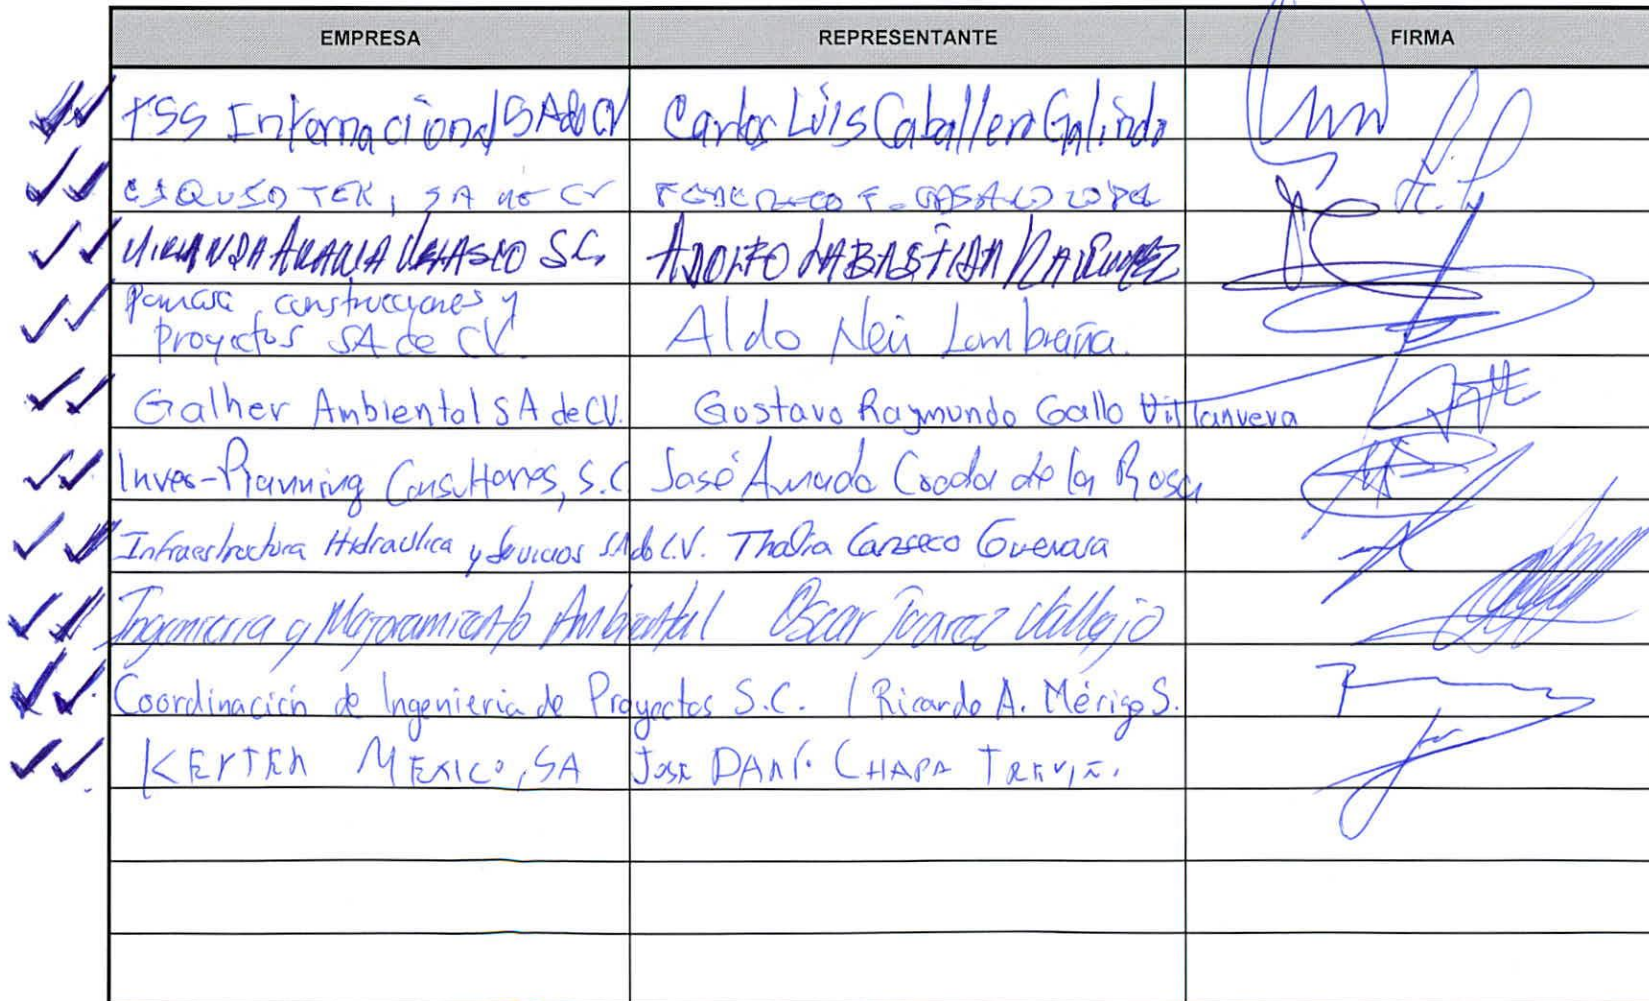 EMPRESA REPRESENTANTE FIRMA
TSS Internacional SA de CV Carlos Luis Caballero Galindo
TEK, SA de CV
MIRANDA ARANA VELASCO SC. ADOLFO LABASTIDA RAMIREZ
construcciones y
proyectos SA de CV. Aldo Lambraña.
Galher Ambiental SA de CV. Gustavo Raymundo Gallo Villanueva
Inves-Planning Consultores, S.C José Amado de la Rosa
Infraestructura Hidraulica y Servicios SA de C.V. Thalia Canseco Guevara
Ingenieria y Mejoramiento Ambiental Oscar Juarez Vallejo
Coordinación de Ingenieria de Proyectos S.C. / Ricardo A. Mérigo S.
MEXICO, SA JOSE CHAPA